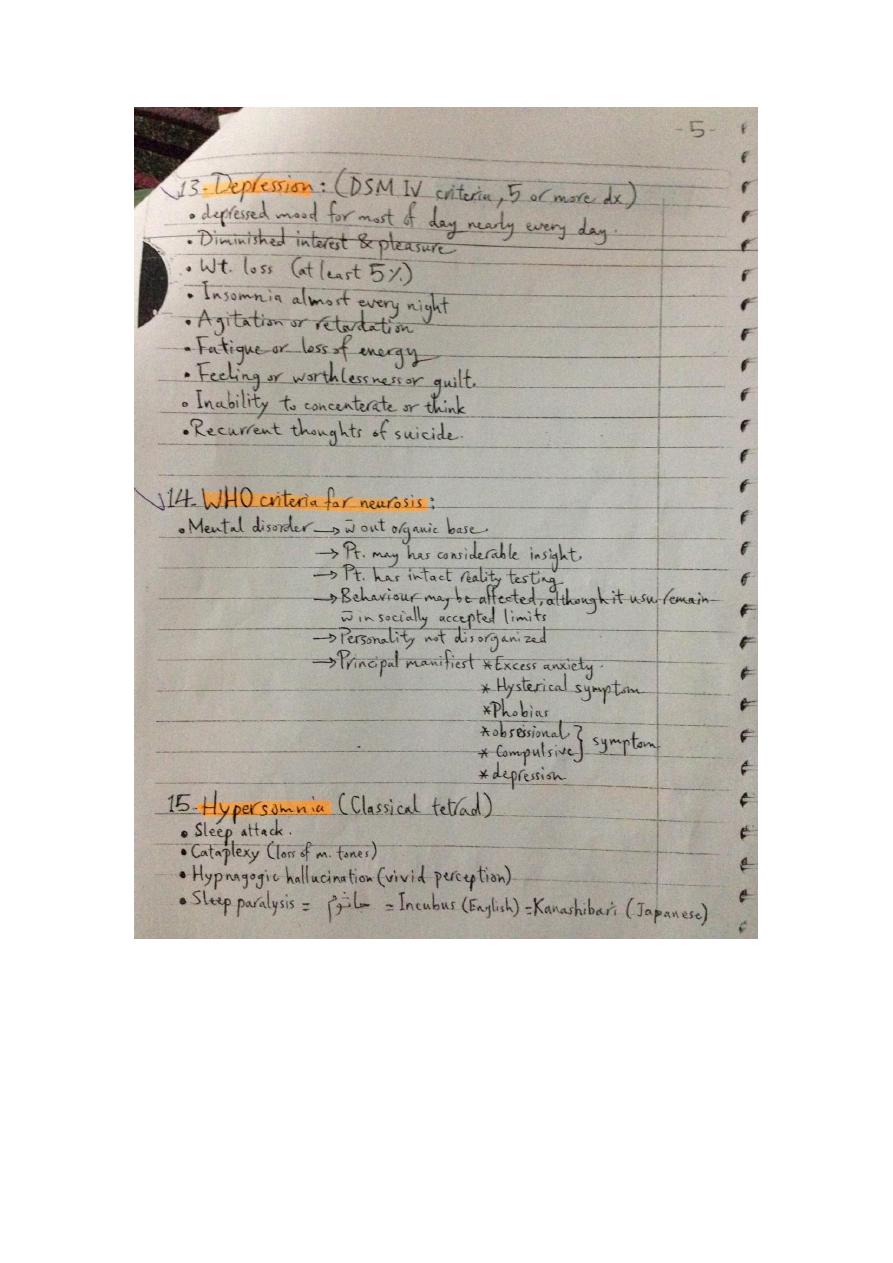 -5-
13- Depression: (DSM IV criteria, 5 or more dx)
• depressed mood for most of day nearly every day.
• Diminished interest & pleasure
• Wt. loss (at least 5%)
• Insomnia almost every night
• Agitation or retardation
• Fatigue or loss of energy
• Feeling or worthlessness or guilt.
• Inability to concenterate or think
• Recurrent thoughts of suicide.
14- WHO criteria for neurosis:
• Mental disorder → w̄ out organic base.
→ Pt. may has considerable insight.
→ Pt. has intact reality testing
→ Behaviour may be affected, although it usu. remain
w̄ in socially accepted limits
→ Personality not disorganized
→ Principal manifiest * Excess anxiety.
* Hysterical symptom
* Phobias
* obsessional } symptom
* Compulsive
* depression
15- Hypersomnia (Classical tetrad)
• Sleep attack.
• Cataplexy (loss of m. tones)
• Hypnagogic hallucination (vivid perception)
• Sleep paralysis = جاثوم = Incubus (English) = Kanashibari (Japanese)